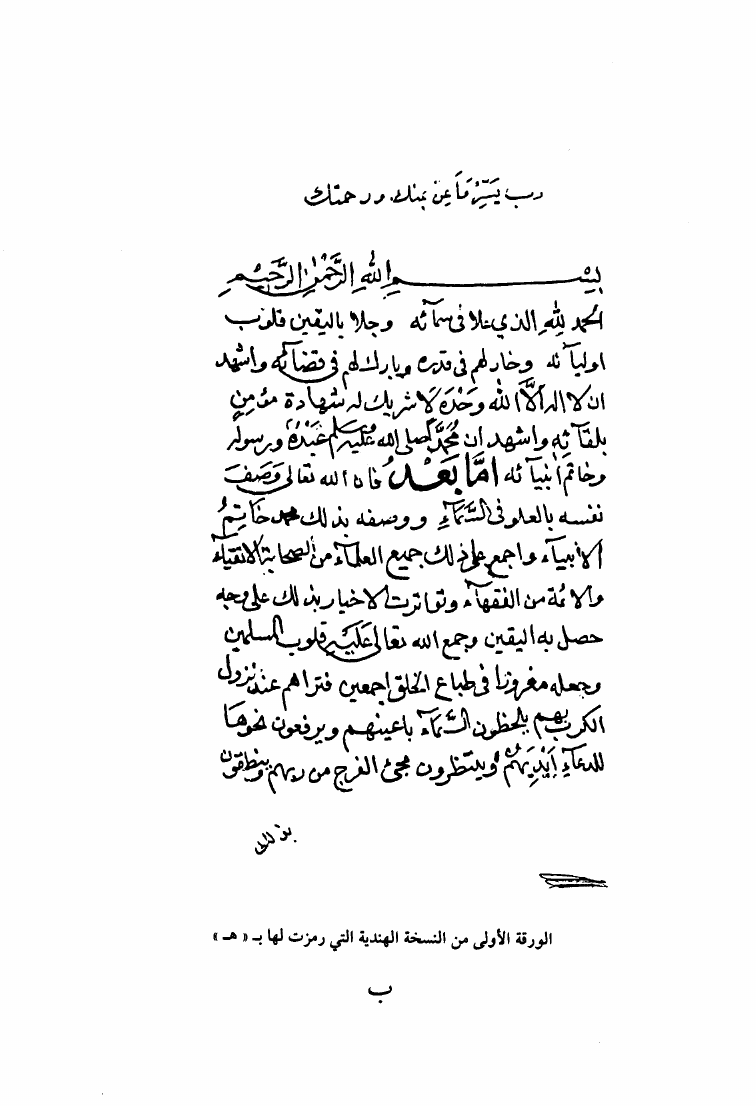 رب يَسِّرْ مَا عَنْ بمنك ورحمتك
بِسْمِ اللهِ الرَّحْمٰنِ الرَّحِيْمِ
الحمد لِلّٰهِ الذي علا في سمائه وجلا باليقين قلوب
اوليآئه وخار لهم فى قدره وبارك لهم في قضائه واشهد
ان لا اله اِلَّا الله وَحْدَهُ لَا شريك له شهادة مؤمِنٍ
بلقآئِهٖ واشهد ان مُحَمَّدًا صلى الله عليه وسلم عَبْدُهٗ ورسوله
وخاتم اَنبيآئه اَمَّا بَعْدُ فان الله تعالى وَصَفَ
نفسه بالعلو فى السَّمَآءِ ووصفه بذلك محمد خَاتِمُ
الانبيآء واجمع على ذلك جميع العلمآء من الصحابة الاتقيآء
والائمة من الفقهآء وتواترت الاخبار بذلك على وجه
حصل به اليقين وجمع الله تعالى عَلَيْهِ قلوب المسلمين
وجعله مغروزا فى طباع الخلق اجمعين فتراهم عند نزول
الكرب بهم يلحظون السَّمَآء باعينهم ويرفعون نحوها
للدعآءِ اَيْدِيَهُمْ وينتظرون مجئ الفرج من ربهم وينطقون
بذلك
الورقة الأولى من النسخة الهندية التي رمزت لها بـ « هـ »
ب